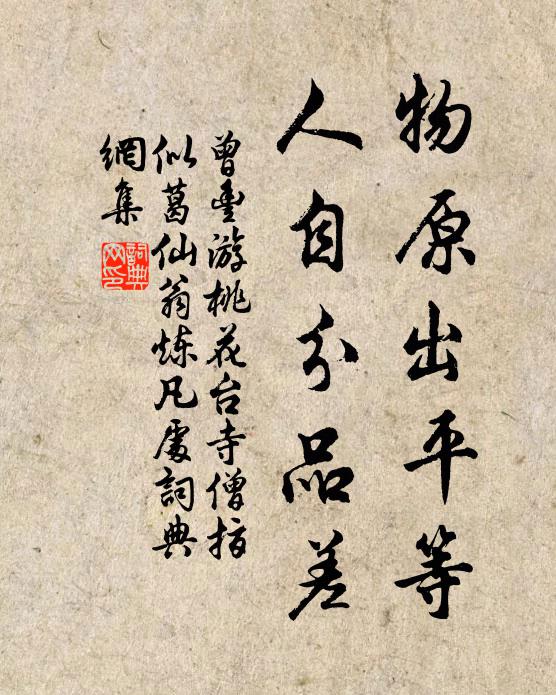 物原出平等
人自分品差
曾豊游桃花台寺僧指
似葛仙翁炼凡處詞典
網集
詞典
网印